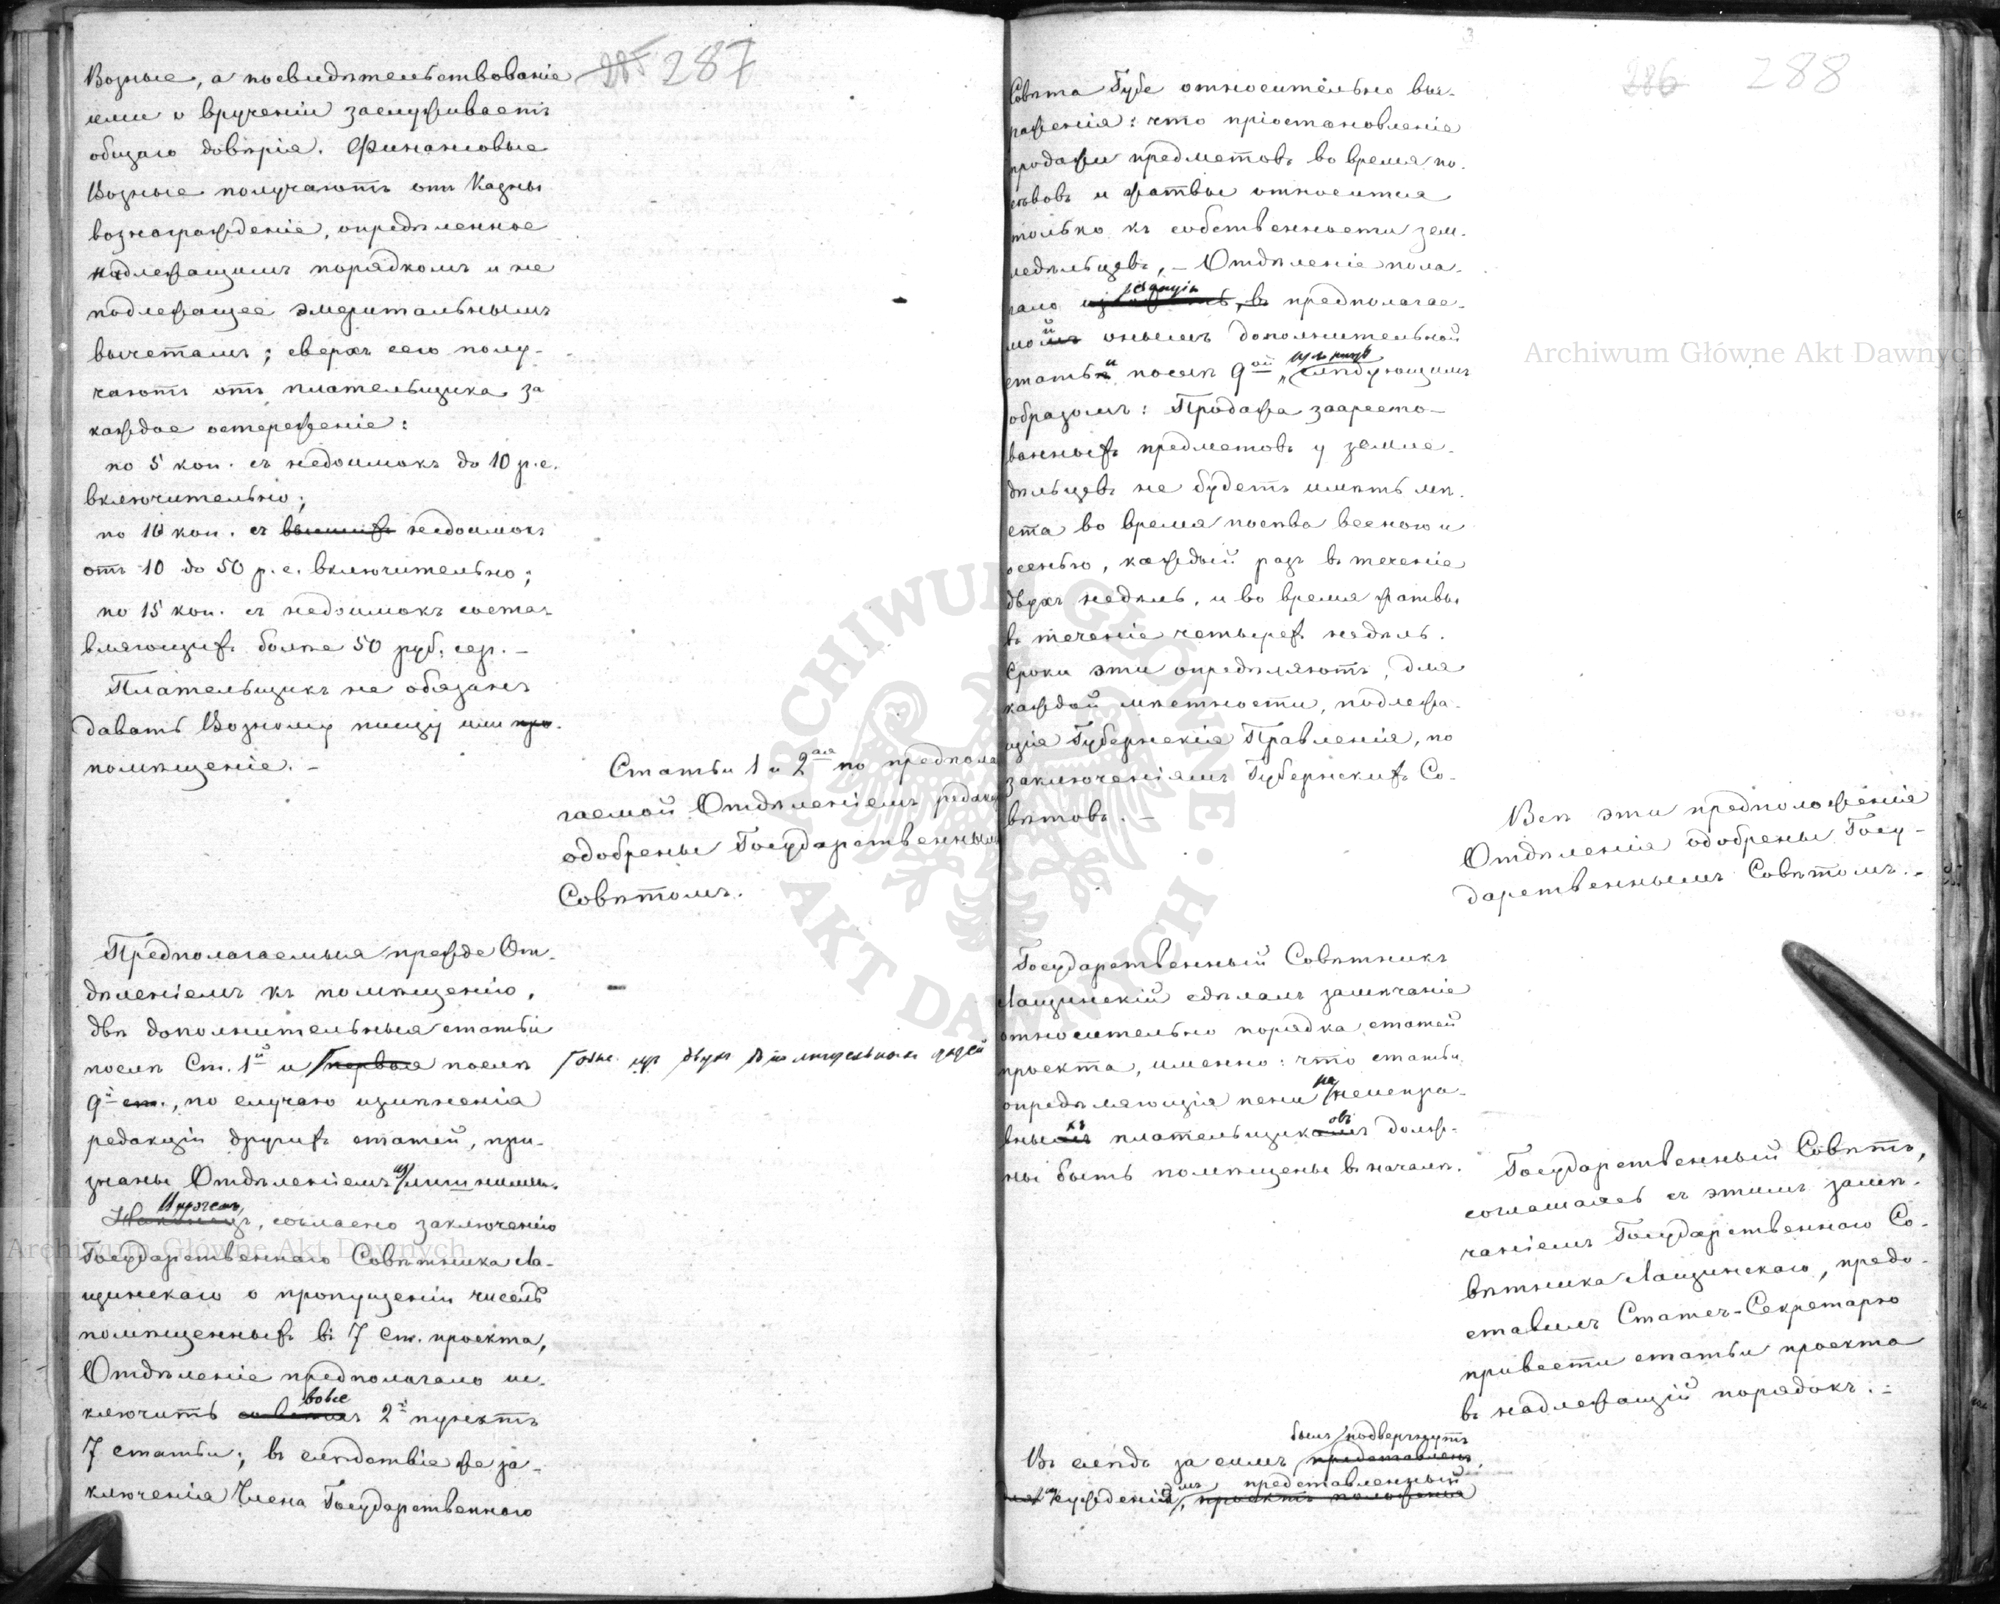 285 287
Возные, а посвидѣтельствованіе
ими о врученіи заслуживаетъ
общаго довѣрія. Финансовые
Возные получаютъ отъ Казны
вознагражденіе, опредѣленное
надлежащимъ порядкомъ и не
подлежащее эмеритальнымъ
вычетамъ; сверхъ сего полу-
чаютъ отъ плательщика за
каждое остереженіе:
по 5 коп. съ недоимокъ до 10 р. с.
включительно;
по 10 коп. съ недоимокъ
отъ 10 до 50 р. с. включительно;
по 15 коп. съ недоимокъ соста-
вляющихъ болѣе 50 руб. сер. –
Плательщикъ не обязанъ
давать Возному пищу или
помѣщеніе. –
Статьи 1 и 2ая по предпола
гаемой Отдѣленіемъ редакц
одобрены Государственнымъ
Совѣтомъ.
Предполагаемыя прежде От-
дѣленіемъ къ помѣщенію,
двѣ дополнительныя статьи
послѣ Ст. 1й и первая послѣ
9й ст., по случаю измѣненія
редакціи другихъ статей, при-
знаны Отдѣленіемъ излишними.
согласно заключенію
Государственнаго Совѣтника Ла-
щинскаго о пропущеніи чиселъ
помѣщенныхъ въ 7 ст. проекта,
Отдѣленіе предполагало ис-
ключить вовсе 2й пунктъ
7 статьи; въ слѣдствіе же за-
ключенія Члена Государственнаго
286 288
Совѣта Губе относительно выр-
раженія: что пріостановленіе
продажи предметовъ во время по-
сѣвовъ и жатвы относится
только къ собственности зем-
ледѣльцевъ, – Отдѣленіе пола-
гало въ предполагае-
мой онымъ дополнительной
статьи послѣ 9ой слѣдующимъ
образомъ: Продажа зааресто-
ванныхъ предметовъ у земле-
дѣльцевъ не будетъ имѣть мѣ-
ста во время посѣва весною и
осенью, каждый разъ въ теченіе
двухъ недѣль, и во время жатвы
въ теченіе четырехъ недѣль.
Сроки эти опредѣляютъ, для
каждой мѣстности, подлежа-
щія Губернскія Правленія, по
заключеніямъ Губернскихъ Со-
вѣтовъ. –
Всѣ эти предположенія
Отдѣленія одобрены Госу-
дарственнымъ Совѣтомъ. –
Государственный Совѣтникъ
Лащинскій сдѣлалъ замѣчаніе
относительно порядка статей
проекта, именно: что статьи
опредѣляющія пени на неиспра-
вныхъ плательщиковъ долж-
ны быть помѣщены въ началѣ.
Государственный Совѣтъ,
соглашаясь съ этимъ замѣ-
чаніемъ Государственнаго Со-
вѣтника Лащинскаго, предо-
ставилъ Статсъ-Секретарю
привести статьи проекта
въ надлежащій порядокъ. –
былъ подвергнутъ
Въ слѣдъ за симъ представленъ
представленный
проектъ положенія
Archiwum Główne Akt Dawnych
Archiwum Główne Akt Dawnych
ARCHIWUM GŁÓWNE • AKT DAWNYCH •